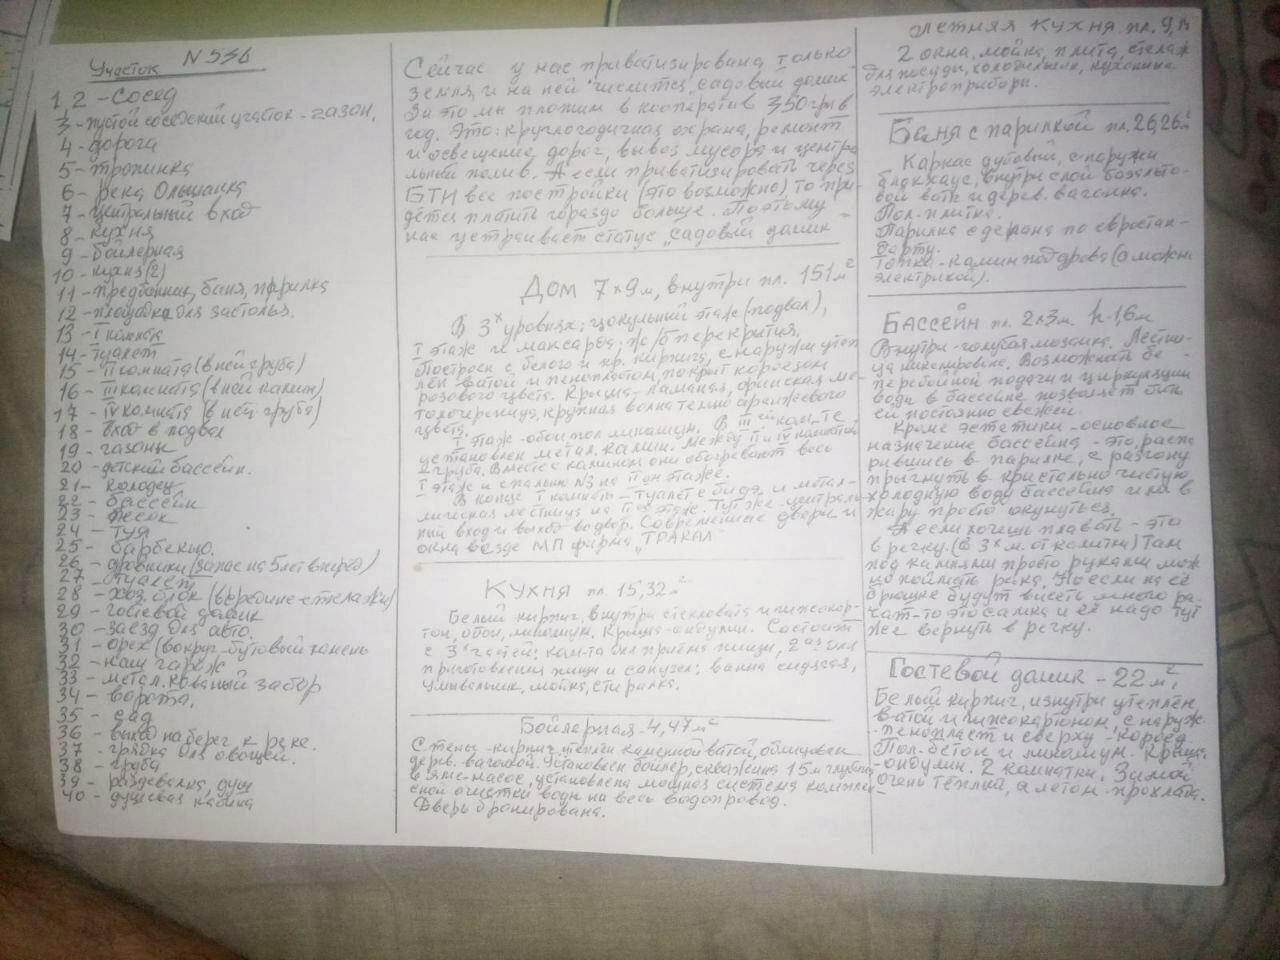 Участок N 536
1, 2 - Сосед
3 - пустой соседский участок - газон.
4 - дорога
5 - тропинка
6 - река Ольшанка
7 - центральный вход
8 - кухня
9 - бойлерная
10 - кухня (2)
11 - предбанник, баня, парилка
12 - площадка для застольз.
13 - I комната
14 - туалет
15 - II комната (в ней груба)
16 - III комната (в ней камин)
17 - IV комната (в ней груба)
18 - вход в подвал
19 - газоны
20 - детский бассейн.
21 - колодец
22 - бассейн
23 - песок
24 - туя
25 - барбекю.
26 - дровники (запас на 5 лет вперед)
27 - туалет
28 - хоз. блок (в середине - стелажи)
29 - гостевой домик
30 - заезд для авто.
31 - орех (вокруг - бутовый камень
32 - наш гараж
33 - метал. кованый забор
34 - ворота.
35 - сад
36 - выход на берег к реке.
37 - грядка для овощей.
38 - груба
39 - раздевалка, душ
40 - душевая кабина
Сейчас у нас приватизирована только
земля, и на ней числится "садовый домик"
За это мы платим в кооператив 350 грн в
год. Это: круглогодичная охрана, ремонт
и освещение дорог, вывоз мусора и центра
льный полив. А если приватизировать через
БТИ все постройки (это возможно) то при-
дется платить гораздо больше. Поэтому
нас устраивает статус "садовый домик"
Дом 7х9м, внутри пл. 151м²
В 3х уровнях: цокульный этаж (подвал),
I этаж и мансарда; ж/б перекрытия,
Построен с белого и кр. кирпича, снаружи утеп
лен ватой и пенопластом, покрыт короедом
розового цвета. Крыша - ламаная, финская ме
талочерепица, кружная волна темно оранжевого
цвета.
I этаж - обои, пол линолиум. В III ей ком-те
установлен метал. камин. Между II и IV комнатой
- груба. Вместе с камином они обогревают весь
I этаж и спальню №3 на II ом этаже.
В конце I комнаты - туалет с бидэ и метал-
лическая лестница на II ой этаж. Тут же - централь
ный вход и выход во двор. Современные двери и
окна везде МП фирма "ТРАКАЛ"
Кухня пл. 15,32²
Белый кирпич, внутри стекловата и гипсокар-
тон, обои, линолиум. Крыша - ондулин. Состоит
с 3х частей: ком-та для приёма пищи, 2ая для
приготовления пищи и санузел: ванна сидячая,
умывальник, мойка, стиралка.
Бойлерная - 4,47м²
Стены - кирпич, утеплён каменной ватой, облицован
дерв. вагонкой. Установлен бойлер, скважина 15м глубиной
в яме - насос, установлена мощная система комплек
сной очистки воды на весь водопровод.
Дверь бронирована.
Летняя кухня пл. 9,
2 окна, мойка, плита, стелаж
для посуды, холодильник, кухонные
электроприборы.
Баня с парилкой пл. 26,26м²
Каркас дубовый, снаружи
блокхаус, внутри слой базальто-
вой ваты и дерев. вагонка.
Пол - плитка.
Парилка сделана по евростан-
дарту.
Топка - камин под дрова (а можно
электрикой).
Бассейн пл. 2х3м h-1,6м
Внутри - голубая мозаика. Лестни-
ца никелирована. Возможность бе-
перебойной подачи и циркуляции
воды в бассейне позволяет быть
ей постоянно свежей.
Кроме эстетики - основное
назначение бассейна - это, распа
рившись в парилке, с разгону
прыгнуть в кристально чистую
холодную воду бассейна или в
жару просто окунуться.
А если хочешь плавать - это
в речку. (В 3х м. от калитки) Там
под камнями просто руками мож
но поймать рака. Но если на её
брюшке будут висеть много ра-
чат - то это самка и её надо тут
же вернуть в речку.
Гостевой домик - 22м²
Белый кирпич, изнутри утеплен
ватой и гипсокартоном, с наруж-
- пенопласт и сверху "короед"
Пол - бетон и линолиум. Крыша
- ондулин. 2 комнатки. Зимой
очень тёплый, а летом - прохлада.